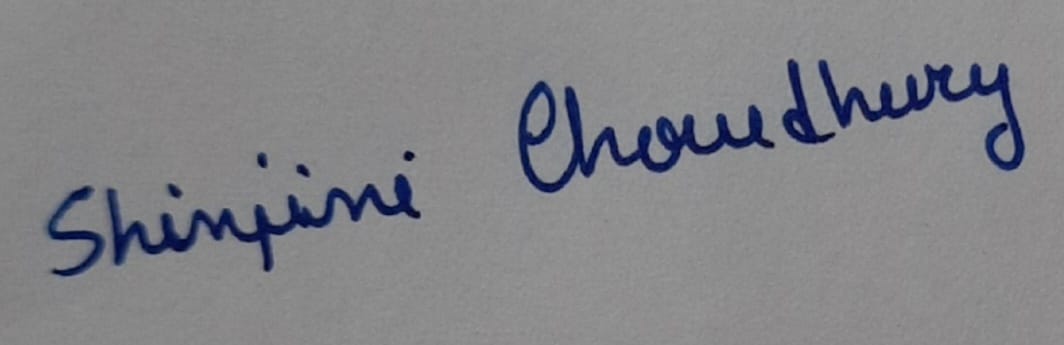 Shinjini Choudhury